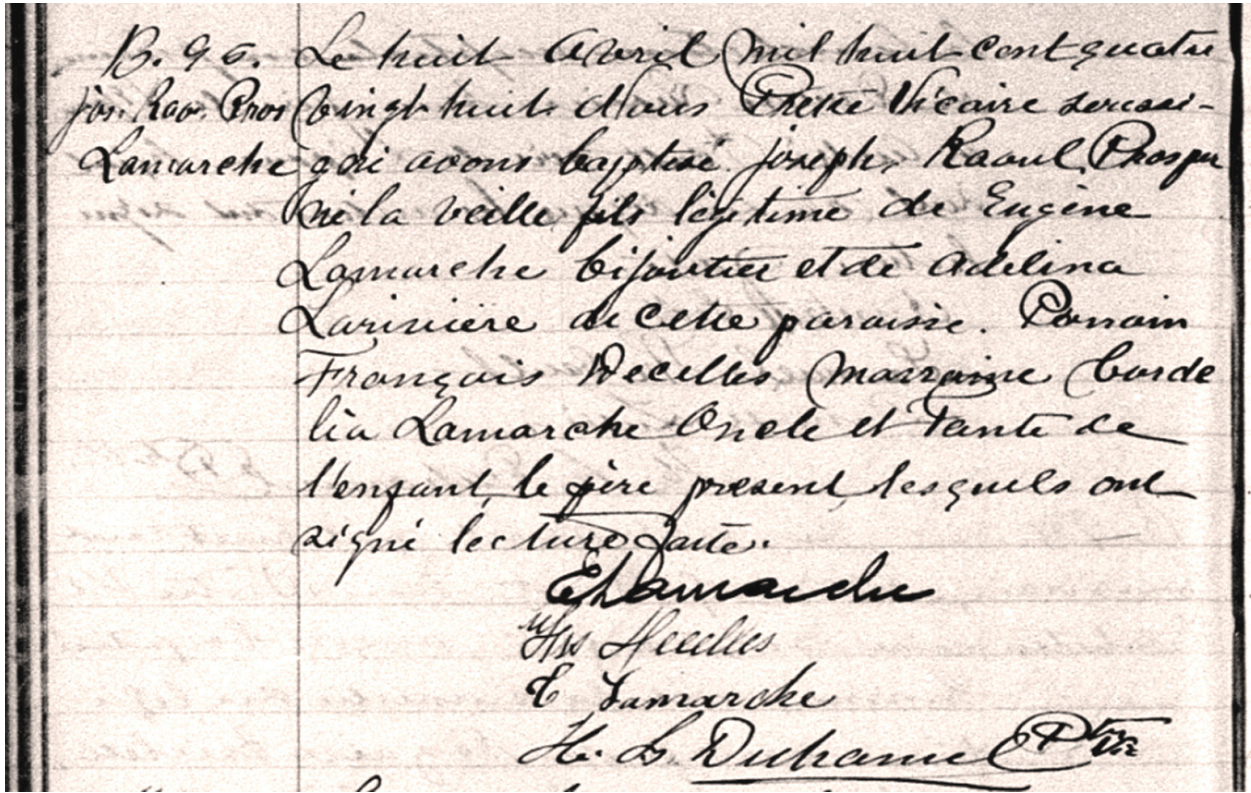 B. 96. Le huit Avril mil huit cent quatre
Jos. Rao. Pros vingt huit Nous Prêtre Vicaire soussi-
Lamarche gné avons baptisé joseph Raoul Prosper
né la veille fils légitime de Eugène
Lamarche bijoutier et de Adelina
Larivière de cette paroisse. Parrain
François Decelles Marraine Corde
lia Lamarche Oncle et Tante de
l'enfant, le père present, lesquels ont
signé lecture faite.
E Lamarche
C Lamarche
H. L. Duhamel Ptre Vic